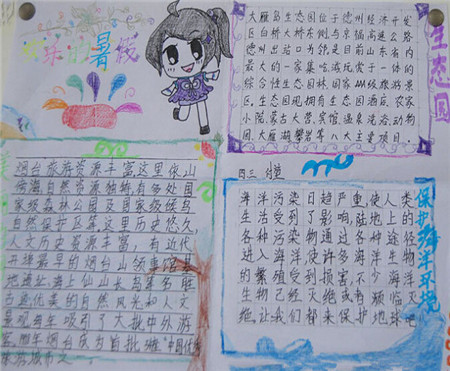 快乐的暑假
烟台旅游资源丰富这里依山
傍海自然资源独特,有多处国
家级森林公园及国家级候鸟
自然保护区等这里历史悠久
人文历史资源丰富,有近代
开埠最早的烟台山领事馆
地遗址,海上仙山长岛等多胜
古迹优美的自然风光和人文
景观每年吸引了大批中外游
烟台成为首批 中国优
大雁岛生态园位于德州经济开发
区白桥大桥东侧与京福高速公路
德州出站口处,是目前山东省内
最大的一家集吃游玩赏于一体的
综合性生态园林,国家AAAA级旅游景
区,生态园现拥有生态园酒店,农家
小院,蒙古大营,宾馆,温泉洗浴,动物
园,大雁湖,攀岩等八大主要项目.
生态园
四三
海洋污染日趋严重,使人类
生活受到了影响,陆地上的
各种污染物通过各种途径
进入海洋使许多海洋生物
的繁殖受到损害,不少海洋
生物已经灭绝或有频临灭
绝,让我们都来保护地球吧
保护海洋环境